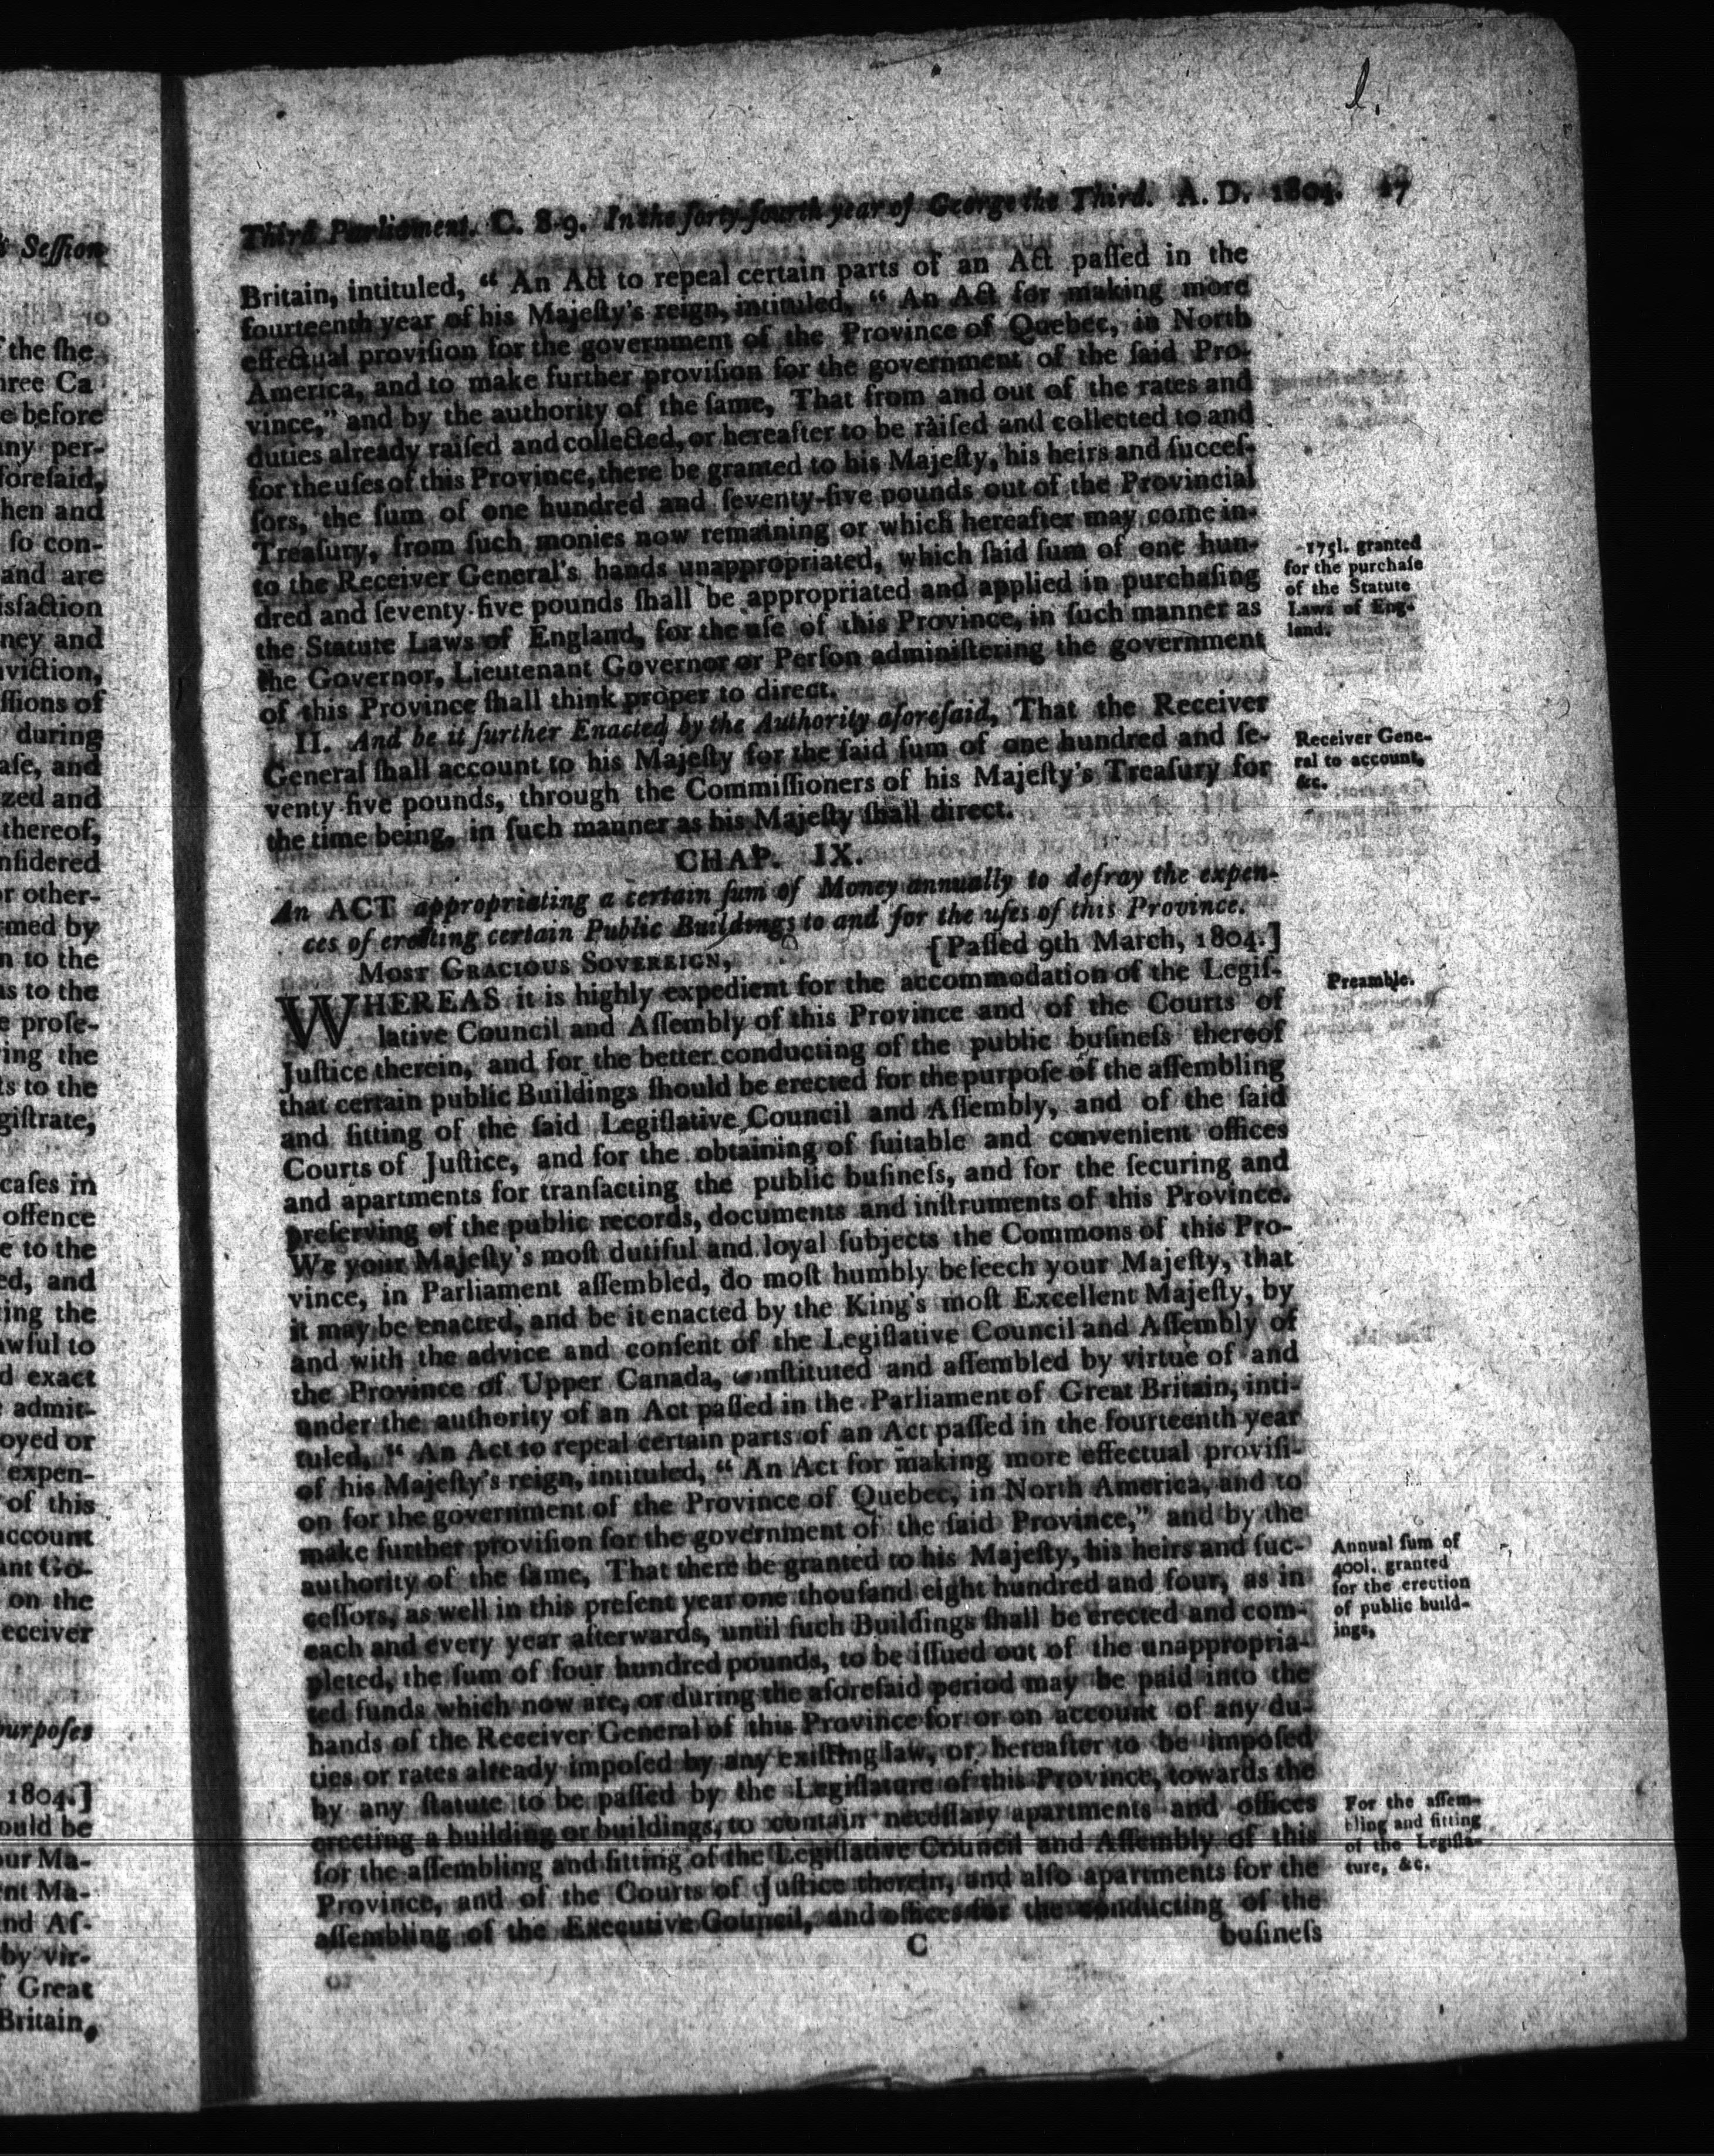 l.
Third Parliament. C. 8-9. In the forty-fourth year of George the Third. A. D. 1804. 17
Britain, intituled, “ An Act to repeal certain parts of an Act paſſed in the
fourteenth year of his Majeſty's reign, intituled, “ An Act for making more
effectual proviſion for the government of the Province of Quebec, in North
America, and to make further proviſion for the government of the ſaid Pro-
vince,” and by the authority of the ſame, That from and out of the rates and
duties already raiſed and collected, or hereafter to be raiſed and collected to and
for the uſes of this Province, there be granted to his Majeſty, his heirs and ſucceſ-
ſors, the ſum of one hundred and ſeventy-five pounds out of the Provincial
Treaſury, from ſuch monies now remaining or which hereafter may come in-
to the Receiver General's hands unappropriated, which ſaid ſum of one hun-
dred and ſeventy-five pounds ſhall be appropriated and applied in purchaſing
the Statute Laws of England, for the uſe of this Province, in ſuch manner as
the Governor, Lieutenant Governor or Perſon adminiſtering the government
of this Province ſhall think proper to direct.
175l. granted
for the purchaſe
of the Statute
Laws of Eng-
land.
II. And be it further Enacted by the Authority aforeſaid, That the Receiver
General ſhall account to his Majeſty for the ſaid ſum of one hundred and ſe-
venty-five pounds, through the Commiſſioners of his Majeſty's Treaſury for
the time being, in ſuch manner as his Majeſty ſhall direct.
Receiver Gene-
ral to account,
&c.
CHAP. IX.
An ACT appropriating a certain ſum of Money annually to defray the expen-
ces of erecting certain Public Buildings to and for the uſes of this Province.
[Paſſed 9th March, 1804.]
MOST GRACIOUS SOVEREIGN,
WHEREAS it is highly expedient for the accommodation of the Legiſ-
lative Council and Aſſembly of this Province and of the Courts of
Juſtice therein, and for the better conducting of the public buſineſs thereof
that certain public Buildings ſhould be erected for the purpoſe of the aſſembling
and ſitting of the ſaid Legiſlative Council and Aſſembly, and of the ſaid
Courts of Juſtice, and for the obtaining of ſuitable and convenient offices
and apartments for tranſacting the public buſineſs, and for the ſecuring and
preſerving of the public records, documents and inſtruments of this Province.
We your Majeſty's moſt dutiful and loyal ſubjects the Commons of this Pro-
vince, in Parliament aſſembled, do moſt humbly beſeech your Majeſty, that
it may be enacted, and be it enacted by the King's moſt Excellent Majeſty, by
and with the advice and conſent of the Legiſlative Council and Aſſembly of
the Province of Upper Canada, conſtituted and aſſembled by virtue of and
under the authority of an Act paſſed in the Parliament of Great Britain, inti-
tuled, “ An Act to repeal certain parts of an Act paſſed in the fourteenth year
of his Majeſty's reign, intituled, “ An Act for making more effectual proviſi-
on for the government of the Province of Quebec, in North America, and to
make further proviſion for the government of the ſaid Province,” and by the
authority of the ſame, That there be granted to his Majeſty, his heirs and ſuc-
ceſſors, as well in this preſent year one thouſand eight hundred and four, as in
each and every year afterwards, until ſuch Buildings ſhall be erected and com-
pleted, the ſum of four hundred pounds, to be iſſued out of the unappropria-
ted funds which now are, or during the aforeſaid period may be paid into the
hands of the Receiver General of this Province for or on account of any du-
ties or rates already impoſed by any exiſting law, or hereafter to be impoſed
by any ſtatute to be paſſed by the Legiſlature of this Province, towards the
erecting a building or buildings, to contain neceſſary apartments and offices
for the aſſembling and ſitting of the Legiſlative Council and Aſſembly of this
Province, and of the Courts of Juſtice therein, and alſo apartments for the
aſſembling of the Executive Council, and offices for the conducting of the
Preamble.
Annual ſum of
400l. granted
for the erection
of public build-
ings,
For the aſſem-
bling and ſitting
of the Legiſla-
ture, &c.
C
buſineſs
's Seſſion
the ſhe
hree Ca
e before
any per-
foreſaid,
hen and
ſo con-
and are
isfaction
ney and
viction,
ſſions of
during
aſe, and
zed and
thereof,
nſidered
or other-
rmed by
n to the
as to the
e proſe-
ving the
ts to the
giſtrate,
caſes in
offence
e to the
ed, and
ring the
awful to
d exact
admit-
oyed or
expen-
of this
account
ant Go-
on the
eceiver
purpoſes
1804.]
ould be
our Ma-
nt Ma-
nd Aſ-
by vir-
f Great
Britain,